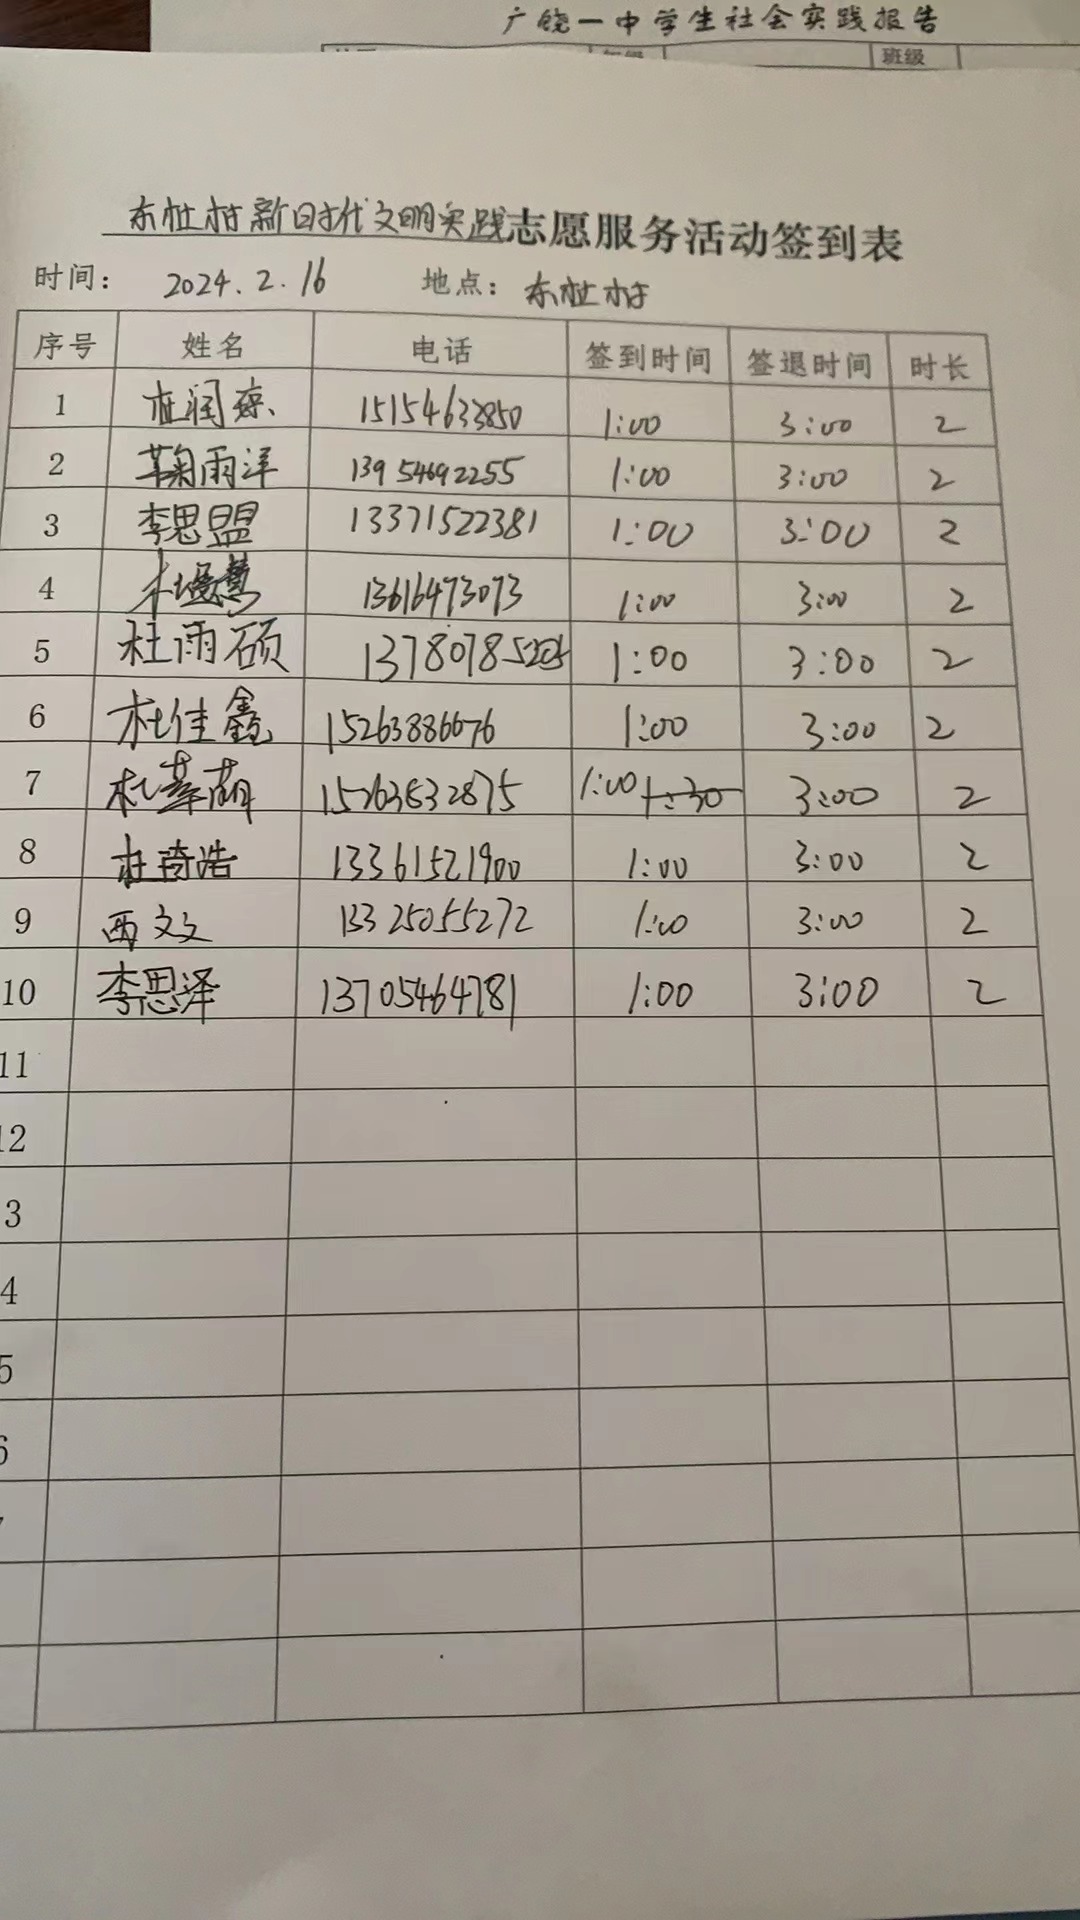 广饶一中学生社会实践报告
班级
东杜村新时代文明实践志愿服务活动签到表
时间： 2024.2.16 地点：东杜村
序号 姓名 电话 签到时间 签退时间 时长
1 杜润 15154633850 1:00 3:00 2
2 鞠雨洋 13954692255 1:00 3:00 2
3 李思盟 13371522381 1:00 3:00 2
4 杜 13616473073 1:00 3:00 2
5 杜雨硕 13780785205 1:00 3:00 2
6 杜佳鑫 15263886676 1:00 3:00 2
7 杜萌 15263832875 1:00 1:30 3:00 2
8 杜琦浩 13361521900 1:00 3:00 2
9 西文文 13325055272 1:00 3:00 2
10 李思泽 13705464781 1:00 3:00 2
11
12
3
4
5
6